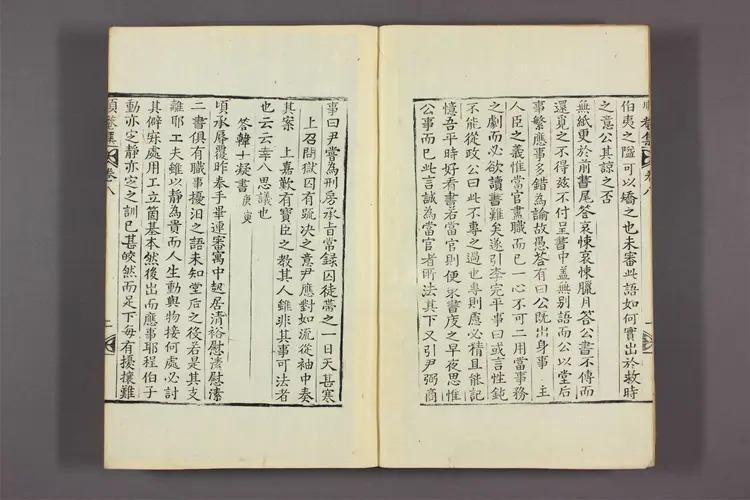 順菴集 卷八
伯夷之隘可以矯之也未審此語如何實出於救時
之意公其諒之否
無紙更於前書尾答哀悚哀悚臘月答公書不傳而
還覓之不得玆不付呈書中盖無別語而公以堂后
事繁應事多錯為諭故愚荅有曰公旣出身事 主
人臣之義惟當官業職而已一心不可二用當事務
之劇而必欲讀書難矣遂引李完平事曰或言性鈍
不能從政公曰此不專之過也專則慮必精且能記
憶吾平時好看書若當官則便束書庋之早夜思惟
公事而已此言誠為當官者所法其下又引尹弼商
事曰尹嘗為刑房承旨常録囚徒帶之一日天甚寒
上召問獄囚有疏决之意尹應對如流從袖中奏
其案 上嘉歎有寶臣之教其人雖非其事可法者
也云云幸入思議也
答韓士凝書 庚寅
頃承辱覆昨奉手畢連審寓中起居清裕慰溸慰溸
二書俱有職事擾汨之語未知堂后之役若是其支
離耶工夫雖以靜為貴而人生動與物接何處必討
其僻寂處用工立箇基本然後出而應事耶程伯子
動亦定靜亦定之訓已甚皎然而足下每有擾攘難
順菴集 卷八